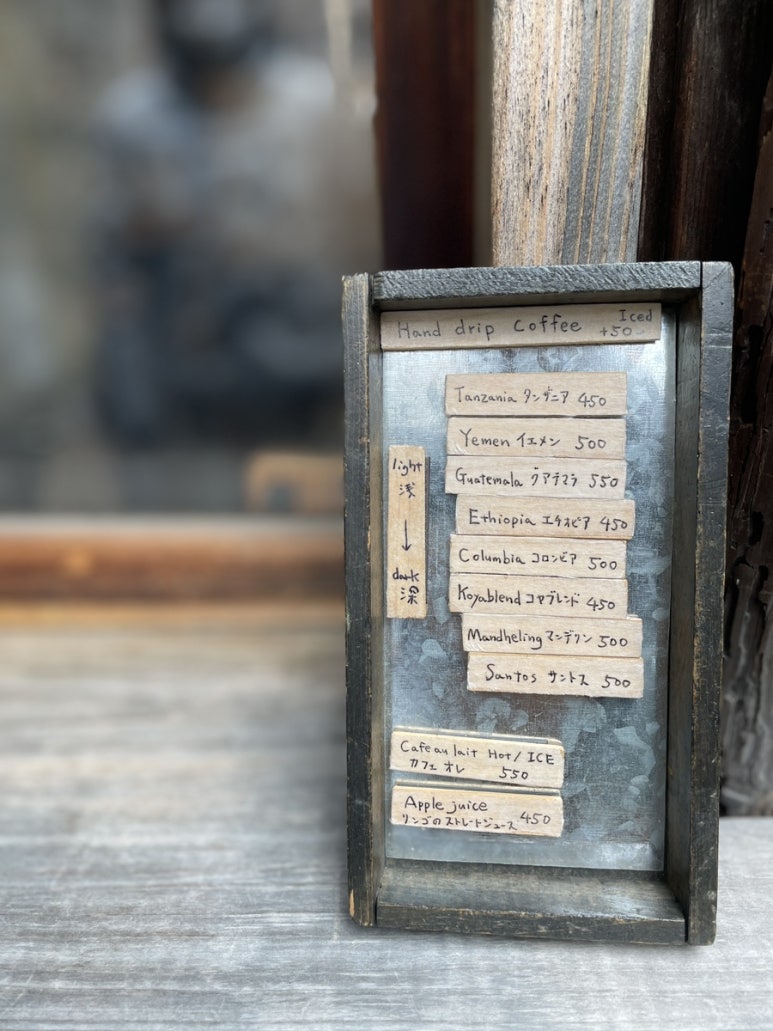 Hand drip Coffee Iced +50
Tanzania タンザニア 450
Yemen イエメン 500
Guatemala グアテマラ 550
Ethiopia エチオピア 450
Columbia コロンビア 500
Koyablend コヤブレンド 450
Mandheling マンデリン 500
Santos サントス 500
light
浅
↓
dark
深
Cafe au lait Hot / ICE
カフェ オレ 550
Apple juice
リンゴのストレートジュース 450